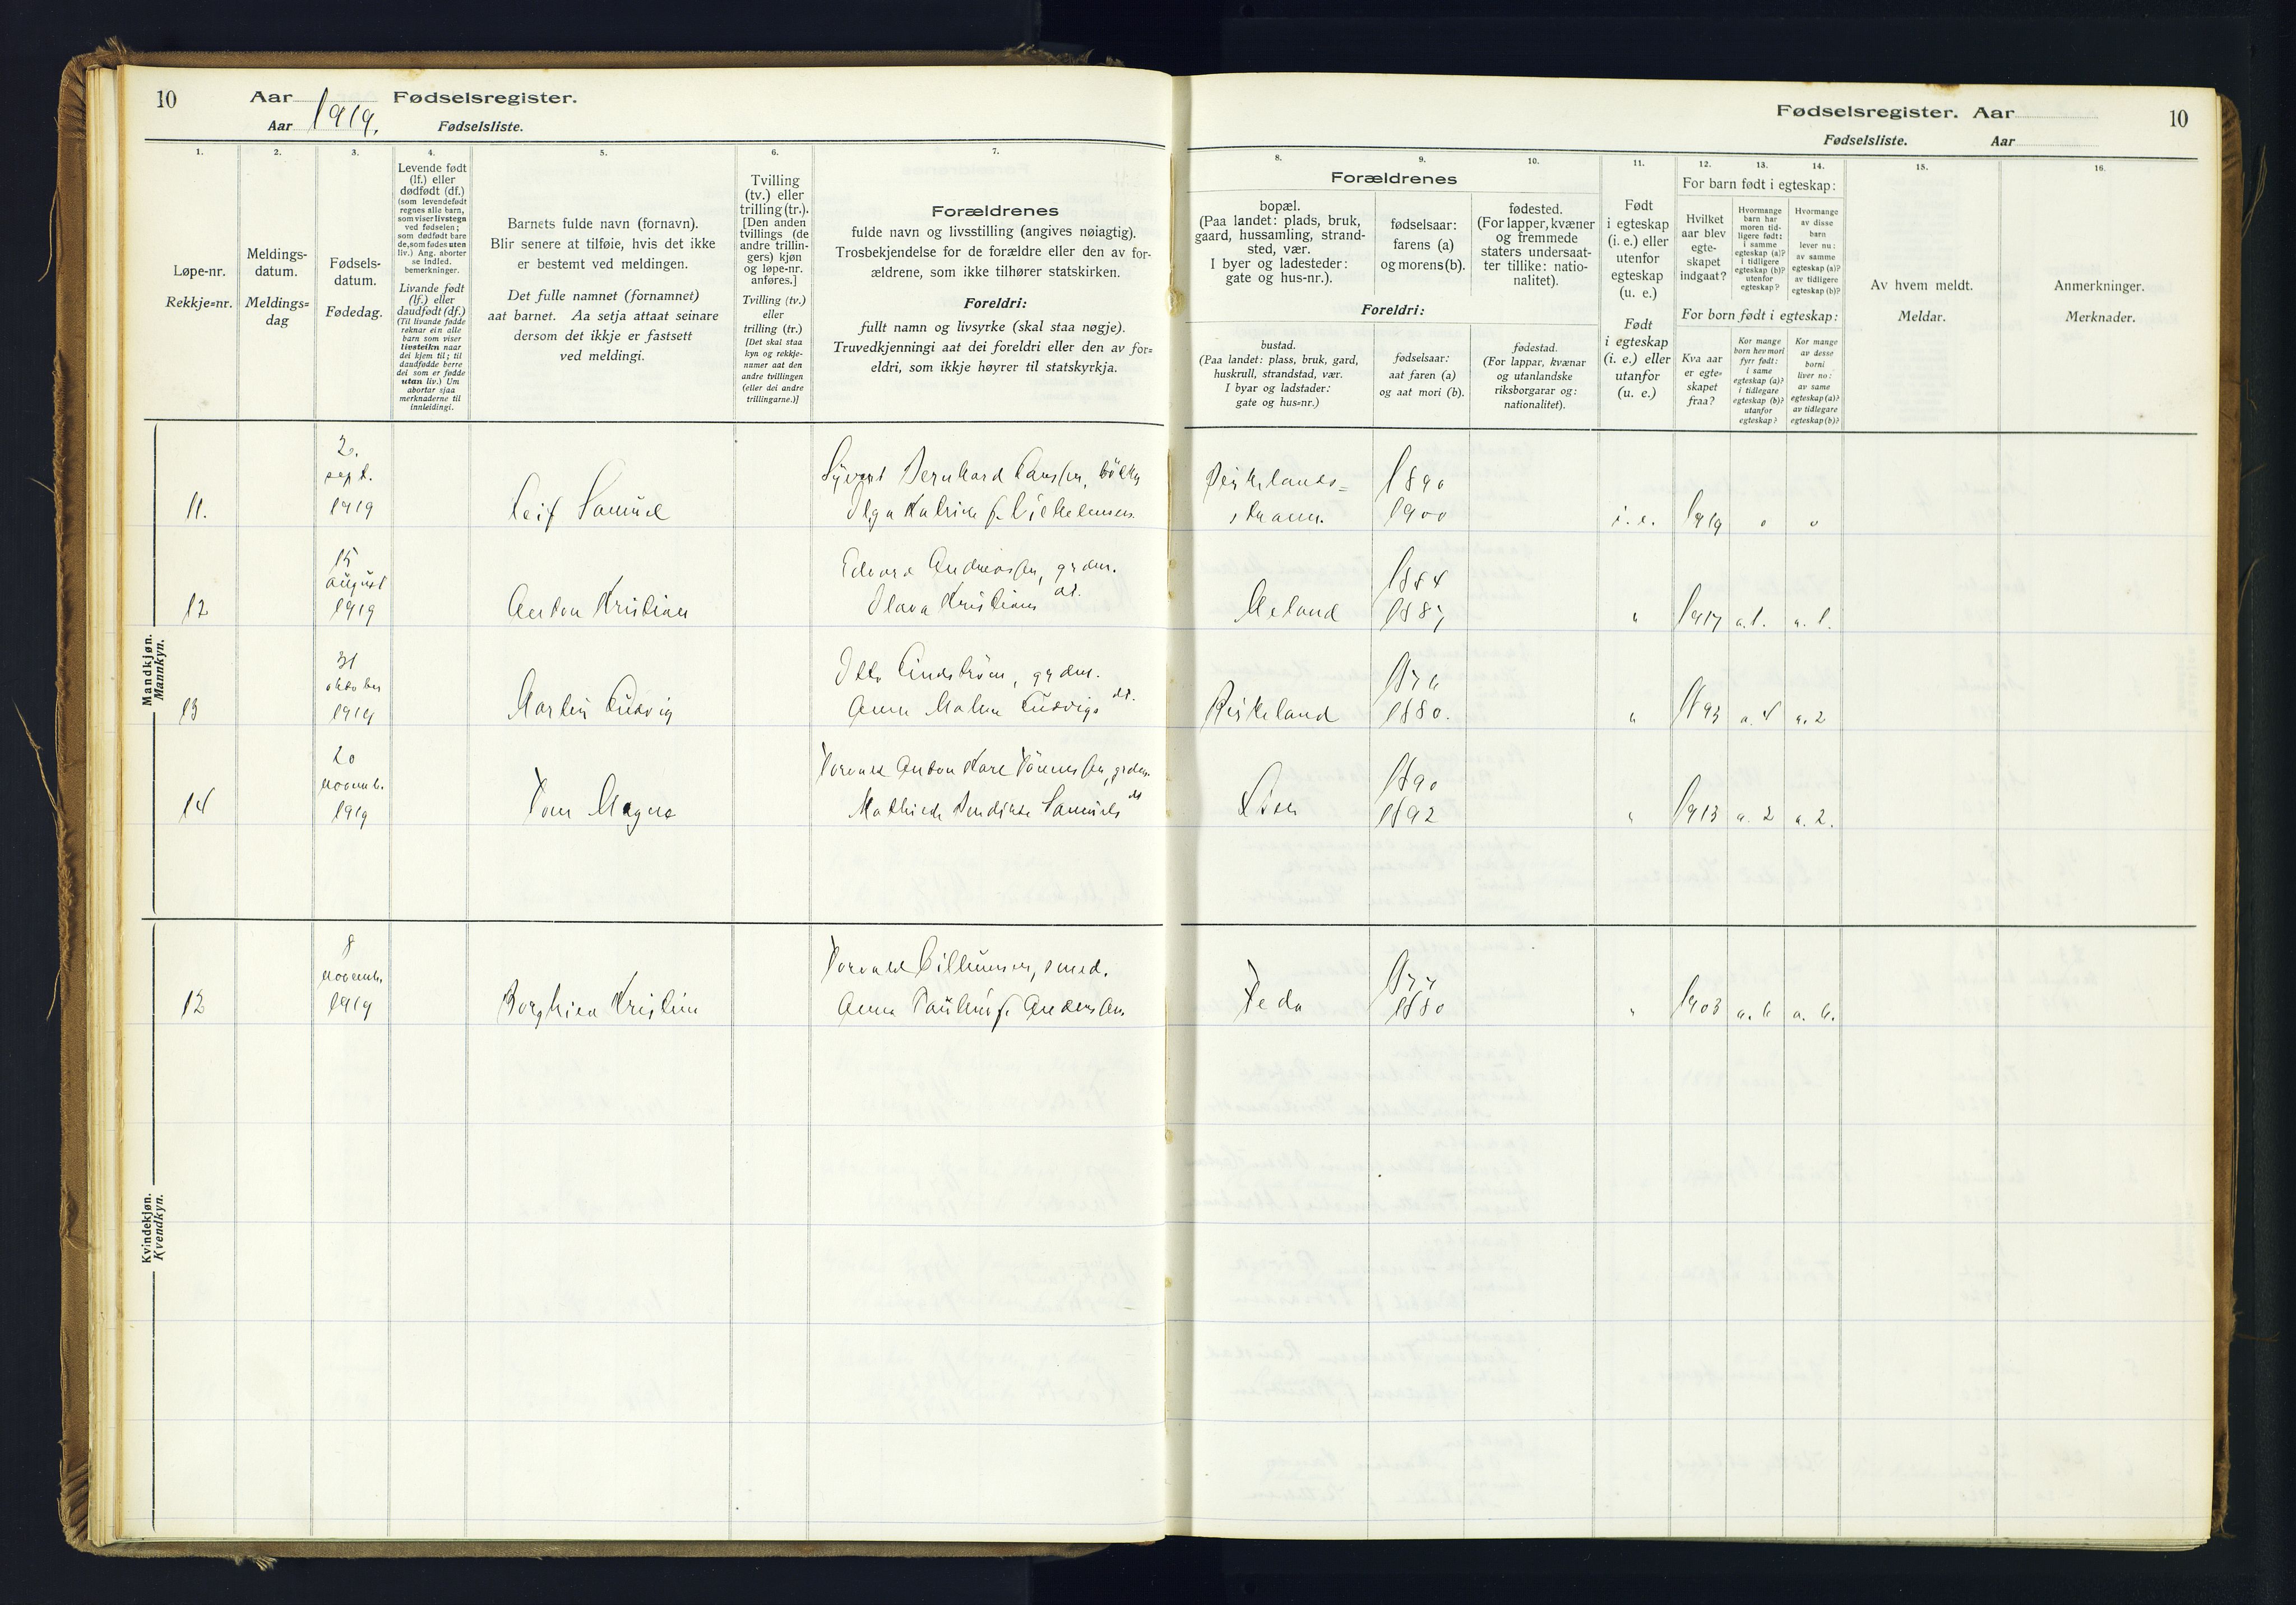 10
Aar 1919. Fødselsregister.
Aar Fødselsliste.
1.
2.
3.
4.
5.
6.
7.
Løpe-nr.
Rekkje=nr.
Meldings-
datum.
Meldings=
dag
Fødsels-
datum.
Fødedag.
Levende født
(lf.) eller
dødfødt (df.)
(som levendefødt
regnes alle barn,
som viser livstegn
ved fødselen;
som dødfødt bare
de, som fødes uten
liv.) Ang. aborter
se indled.
bemerkninger.
Livande født
(lf.) eller
daudfødt (df.)
(Til livande fødde
reknar ein alle
barn som viser
livsteikn naar
dei kjem til; til
daudfødde berre
dei som er fødde
utan liv.) Um
abortar sjaa
merknaderne til
innleidingi.
Barnets fulde navn (fornavn).
Blir senere at tilføie, hvis det ikke
er bestemt ved meldingen.
Det fulle namnet (fornamnet)
aat barnet. Aa setja attaat seinare
dersom det ikkje er fastsett
ved meldingi.
Tvilling
(tv.) eller
trilling (tr.).
[Den anden
tvillings (de
andre trillin-
gers) kjøn
og løpe-nr.
anføres.]
Tvilling (tv.)
eller
trilling (tr.)
[Det skal staa
kyn og rekkje-
numer aat den
andre tvillingen
(eller dei andre
trillingarne.)]
Forældrenes
fulde navn og livsstilling (angives nøiagtig).
Trosbekjendelse for de forældre eller den av for-
ældrene, som ikke tilhører statskirken.
Foreldri:
fullt namn og livsyrke (skal staa nøgje).
Truvedkjenningi aat dei foreldri eller den av for=
eldri, som ikkje høyrer til statskyrkja.
Mandkjøn.
Mannkyn.
2.
sept.
11. 1919 Leif Samuel
15
august
12 1919 Anton Kristian
Edvard Andreassen, grdm.
Olava Kristians dt.
31
oktober
13 1919 Martin Ludvig
Otto Lindstrøm, grdm.
Anna Malene Ludvigs dt.
20
novemb.
14 1919 Tom Magne
Mathilde Bendikte Samuels dt
Kvindekjøn.
Kvendkyn.
8
novemb.
12 1919 Borghild Kristine
smed.
Anna Pauline f. Andersen
Fødselsregister. Aar 10
Fødselsliste. Aar
8.
9.
10.
11.
12.
13.
14.
15.
16.
Forældrenes
bopæl.
(Paa landet: plads, bruk,
gaard, hussamling, strand-
sted, vær.
I byer og ladesteder:
gate og hus-nr.).
fødselsaar:
farens (a)
og morens (b).
fødested.
(For lapper, kvæner
og fremmede
staters undersaat-
ter tillike: natio-
nalitet).
Foreldri:
bustad.
(Paa landet: plass, bruk, gard,
huskrull, strandstad, vær.
I byar og ladstader:
gate og hus=nr.)
fødselsaar:
aat faren (a)
og aat mori (b).
fødestad.
(For lappar, kvænar
og utanlandske
riksborgarar og:
nationalitet).
Født
i egteskap
(i. e.) eller
utenfor
egteskap
(u. e.)
Født
i egteskap
(i. e.) eller
utanfor
(u. e.)
For barn født i egteskap:
Hvilket
aar blev
egte-
skapet
indgaat?
Hvormange
barn har
moren tid-
ligere født:
i samme
egteskap (a)?
i tidligere
egteskap (b)?
utenfor
egteskap?
Hvormange
av disse
barn
lever nu:
av samme
egteskap (a)?
av tidligere
egteskap (b)?
For born født i egteskap:
Kva aar
er egte-
skapet
fraa?
Kor mange
born hev mori
fyrr født:
i same
egteskap (a)?
i tidlegare
egteskap (b)?
utanfor
egteskap?
Kor mange
av desse
borni
liver no:
av same
egteskap (a)?
av tidlegare
egteskap (b)?
Av hvem meldt.
Meldar.
Anmerkninger.
Merknader.
Birkelands=
strann.
1890
1900 i. e. 1919 0 0
1884
Aeland 1887 " 1917 a. 1. a. 1.
Birkeland 1880. " a. 4 a. 2
1890
1892 " 1913 a. 2 a. 2.
1877
Feda 1880 " 1903 a. 6 a. 6.